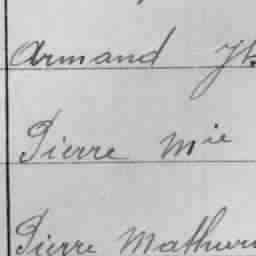 Armand
Pierre Mie
Pierre Mathurin